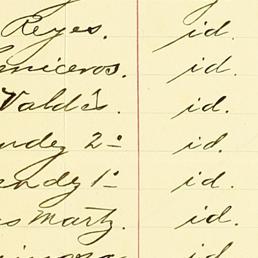 Reyes. id.
eniceros. id.
Valdés. id.
ndez 2º id.
endez 1º id.
s Martz. id.
id